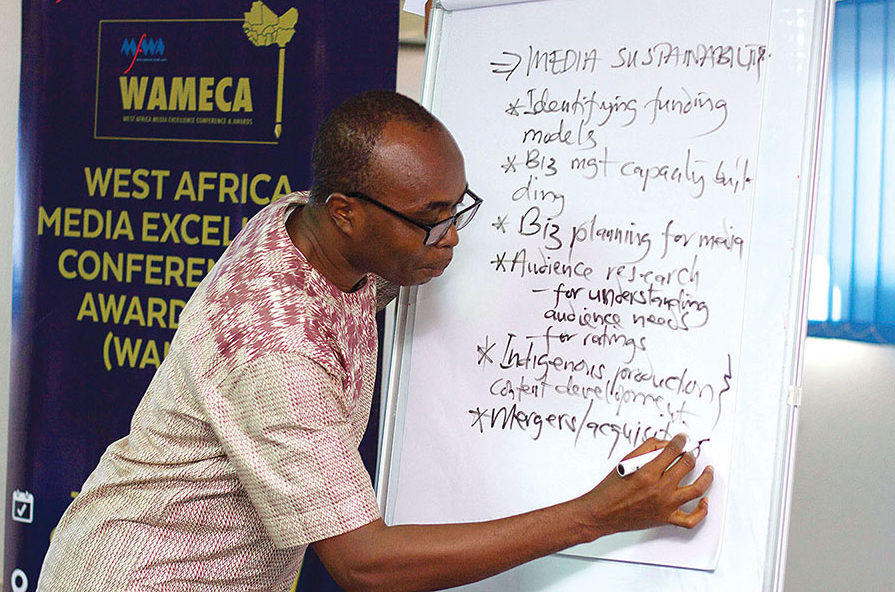 MFWA
WAMECA
WEST AFRICA MEDIA EXCELLENCE CONFERENCE & AWARDS
WEST AFRICA
MEDIA EXCELL
CONFEREN
AWARD
(WA
⇒ MEDIA SUSTAINABILITY.
* Identifying funding
models
* Biz mgt capacity buil-
ding
* Biz planning for media
* Audience research
- for understanding
audience needs
for ratings
* Indigenous/production
content development
* Mergers/acquisiti